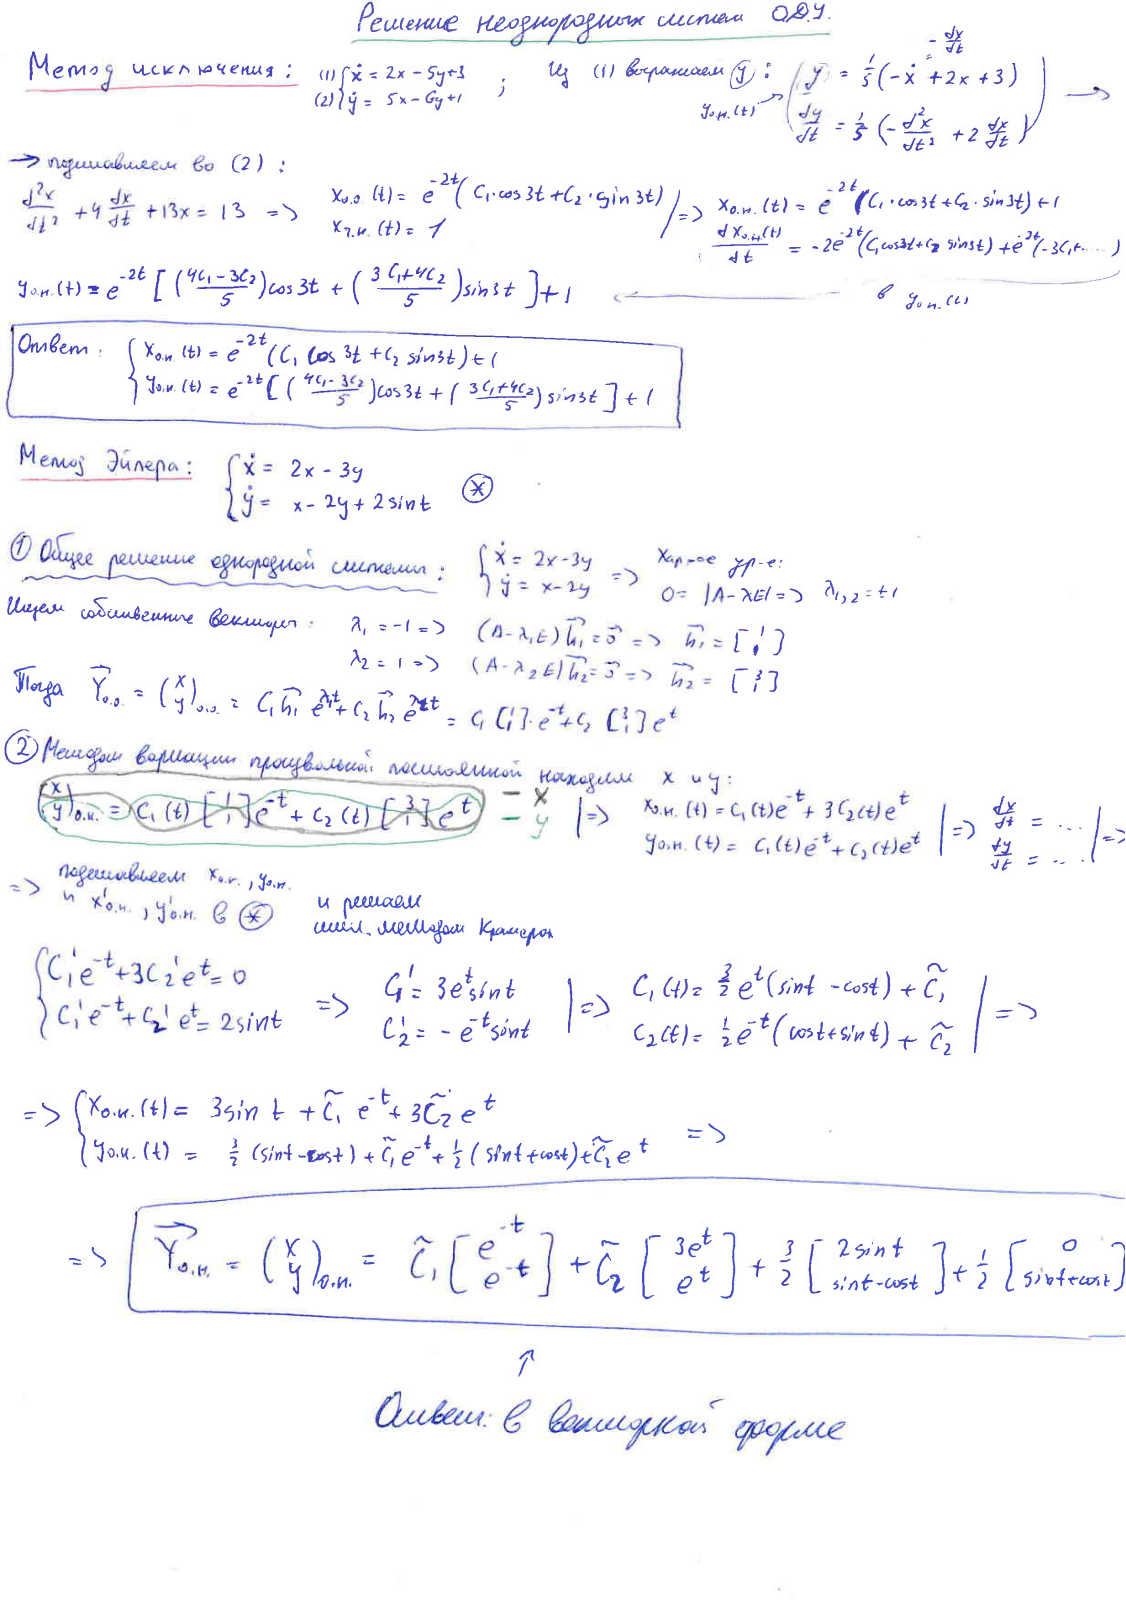 Решение неоднородных систем ОДУ.
Метод исключения: (1) { ẋ = 2x - 5y + 3 ; Из (1) выражаем y : y = 1/5 (-ẋ + 2x + 3) →
- dx/dt
(2) { ẏ = 5x - 6y + 1
yо.н.(t) → dy/dt = 1/5 (- d²x/dt² + 2 dx/dt)
→ подставляем во (2) :
d²x/dt² + 4 dx/dt + 13x = 13 => xо.о (t) = e^-2t (C₁·cos3t + C₂·sin3t) / => xо.н.(t) = e^-2t (C₁·cos3t + C₂·sin3t) + 1
xч.н.(t) = 1
dxо.н(t)/dt = -2e^-2t (C₁cos3t + C₂ sin3t) + e^-2t (-3C₁ + ....)
yо.н.(t) = e^-2t [ ( (4C₁ - 3C₂)/5 ) cos3t + ( (3C₁ + 4C₂)/5 ) sin3t ] + 1 ← в yо.н.(t)
Ответ: { xо.н.(t) = e^-2t (C₁ cos 3t + C₂ sin3t) + 1
yо.н.(t) = e^-2t [ ( (4C₁ - 3C₂)/5 ) cos3t + ( (3C₁ + 4C₂)/5 ) sin3t ] + 1
Метод Эйлера: { ẋ = 2x - 3y
ẏ = x - 2y + 2sint (*)
① Общее решение однородной системы : { ẋ = 2x - 3y => Хар-ное ур-е:
ẏ = x - 2y 0 = |A - λE| => λ₁,₂ = ±1
Ищем собственные векторы : λ₁ = -1 => (A - λ₁E) h₁ = 0 => h₁ = [1 1]
λ₂ = 1 => (A - λ₂E) h₂ = 0 => h₂ = [3 1]
Тогда Yо.о. = (x y)о.о. = C₁ h₁ e^λ₁t + C₂ h₂ e^λ₂t = C₁ [1 1]·e^-t + C₂ [3 1] e^t
② Методом вариации произвольной постоянной находим x и y:
(x y)о.н. = C₁(t) [1 1] e^-t + C₂(t) [3 1] e^t - x - y | => xо.н.(t) = C₁(t)e^-t + 3C₂(t)e^t | => dx/dt = ... | =>
yо.н.(t) = C₁(t)e^-t + C₂(t)e^t dy/dt = ...
=> подставляем xо.н., yо.н.
и x'о.н., y'о.н. в (*) и решаем
сист. методом Крамера
{ C₁'e^-t + 3C₂'e^t = 0 => C₁' = 3e^t sint | => C₁(t) = 3/2 e^t (sint - cost) + C̃₁ | =>
C₁'e^-t + C₂'e^t = 2sint C₂' = - e^-t sint C₂(t) = 1/2 e^-t (cost + sint) + C̃₂
=> { xо.н.(t) = 3sin t + C̃₁ e^-t + 3C̃₂ e^t
yо.н.(t) = 3/2 (sint - cost) + C̃₁e^-t + 1/2 (sint + cost) + C̃₂e^t =>
=> Yо.н. = (x y)о.н. = C̃₁ [e^-t e^-t] + C̃₂ [3e^t e^t] + 3/2 [2sint sint - cost] + 1/2 [0 sint + cost]
↑
Ответ: в векторной форме